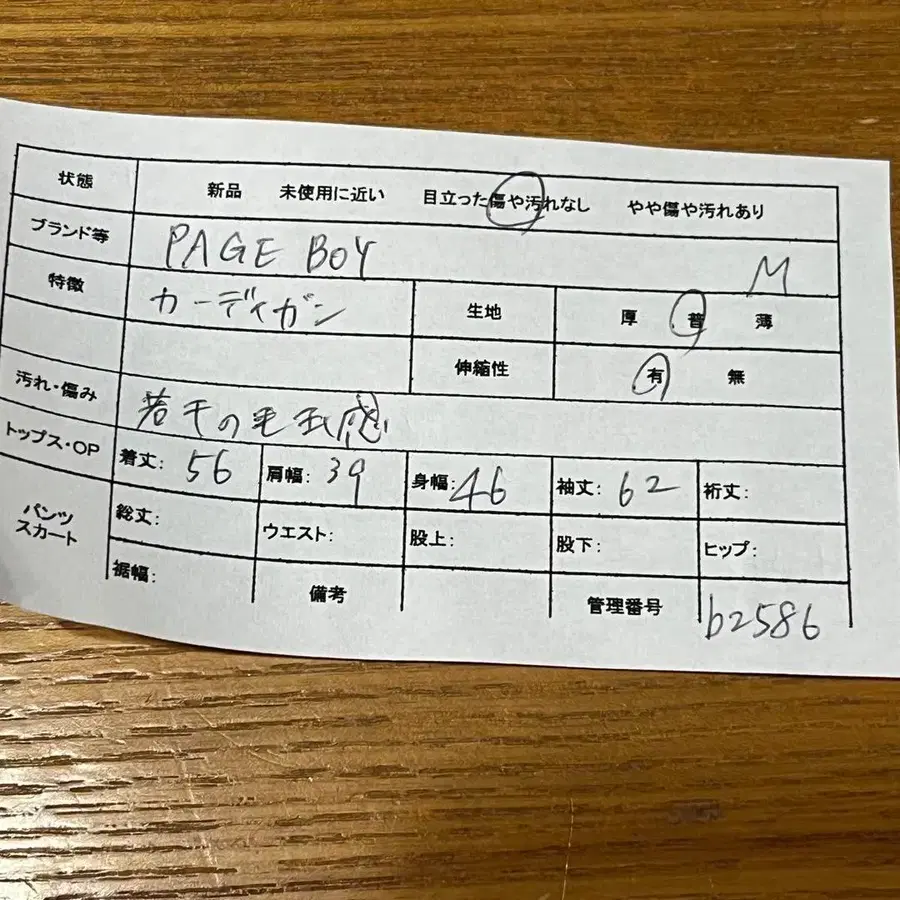 状態 新品 未使用に近い 目立った傷や汚れなし やや傷や汚れあり
ブランド等 PAGE BOY M
特徴 カーディガン 生地 厚 普 薄
伸縮性 有 無
汚れ・傷み 若干の毛玉感
トップス・OP 着丈: 56 肩幅: 39 身幅: 46 袖丈: 62 裄丈:
パンツ スカート 総丈: ウエスト: 股上: 股下: ヒップ:
裾幅: 備考 管理番号 b2586